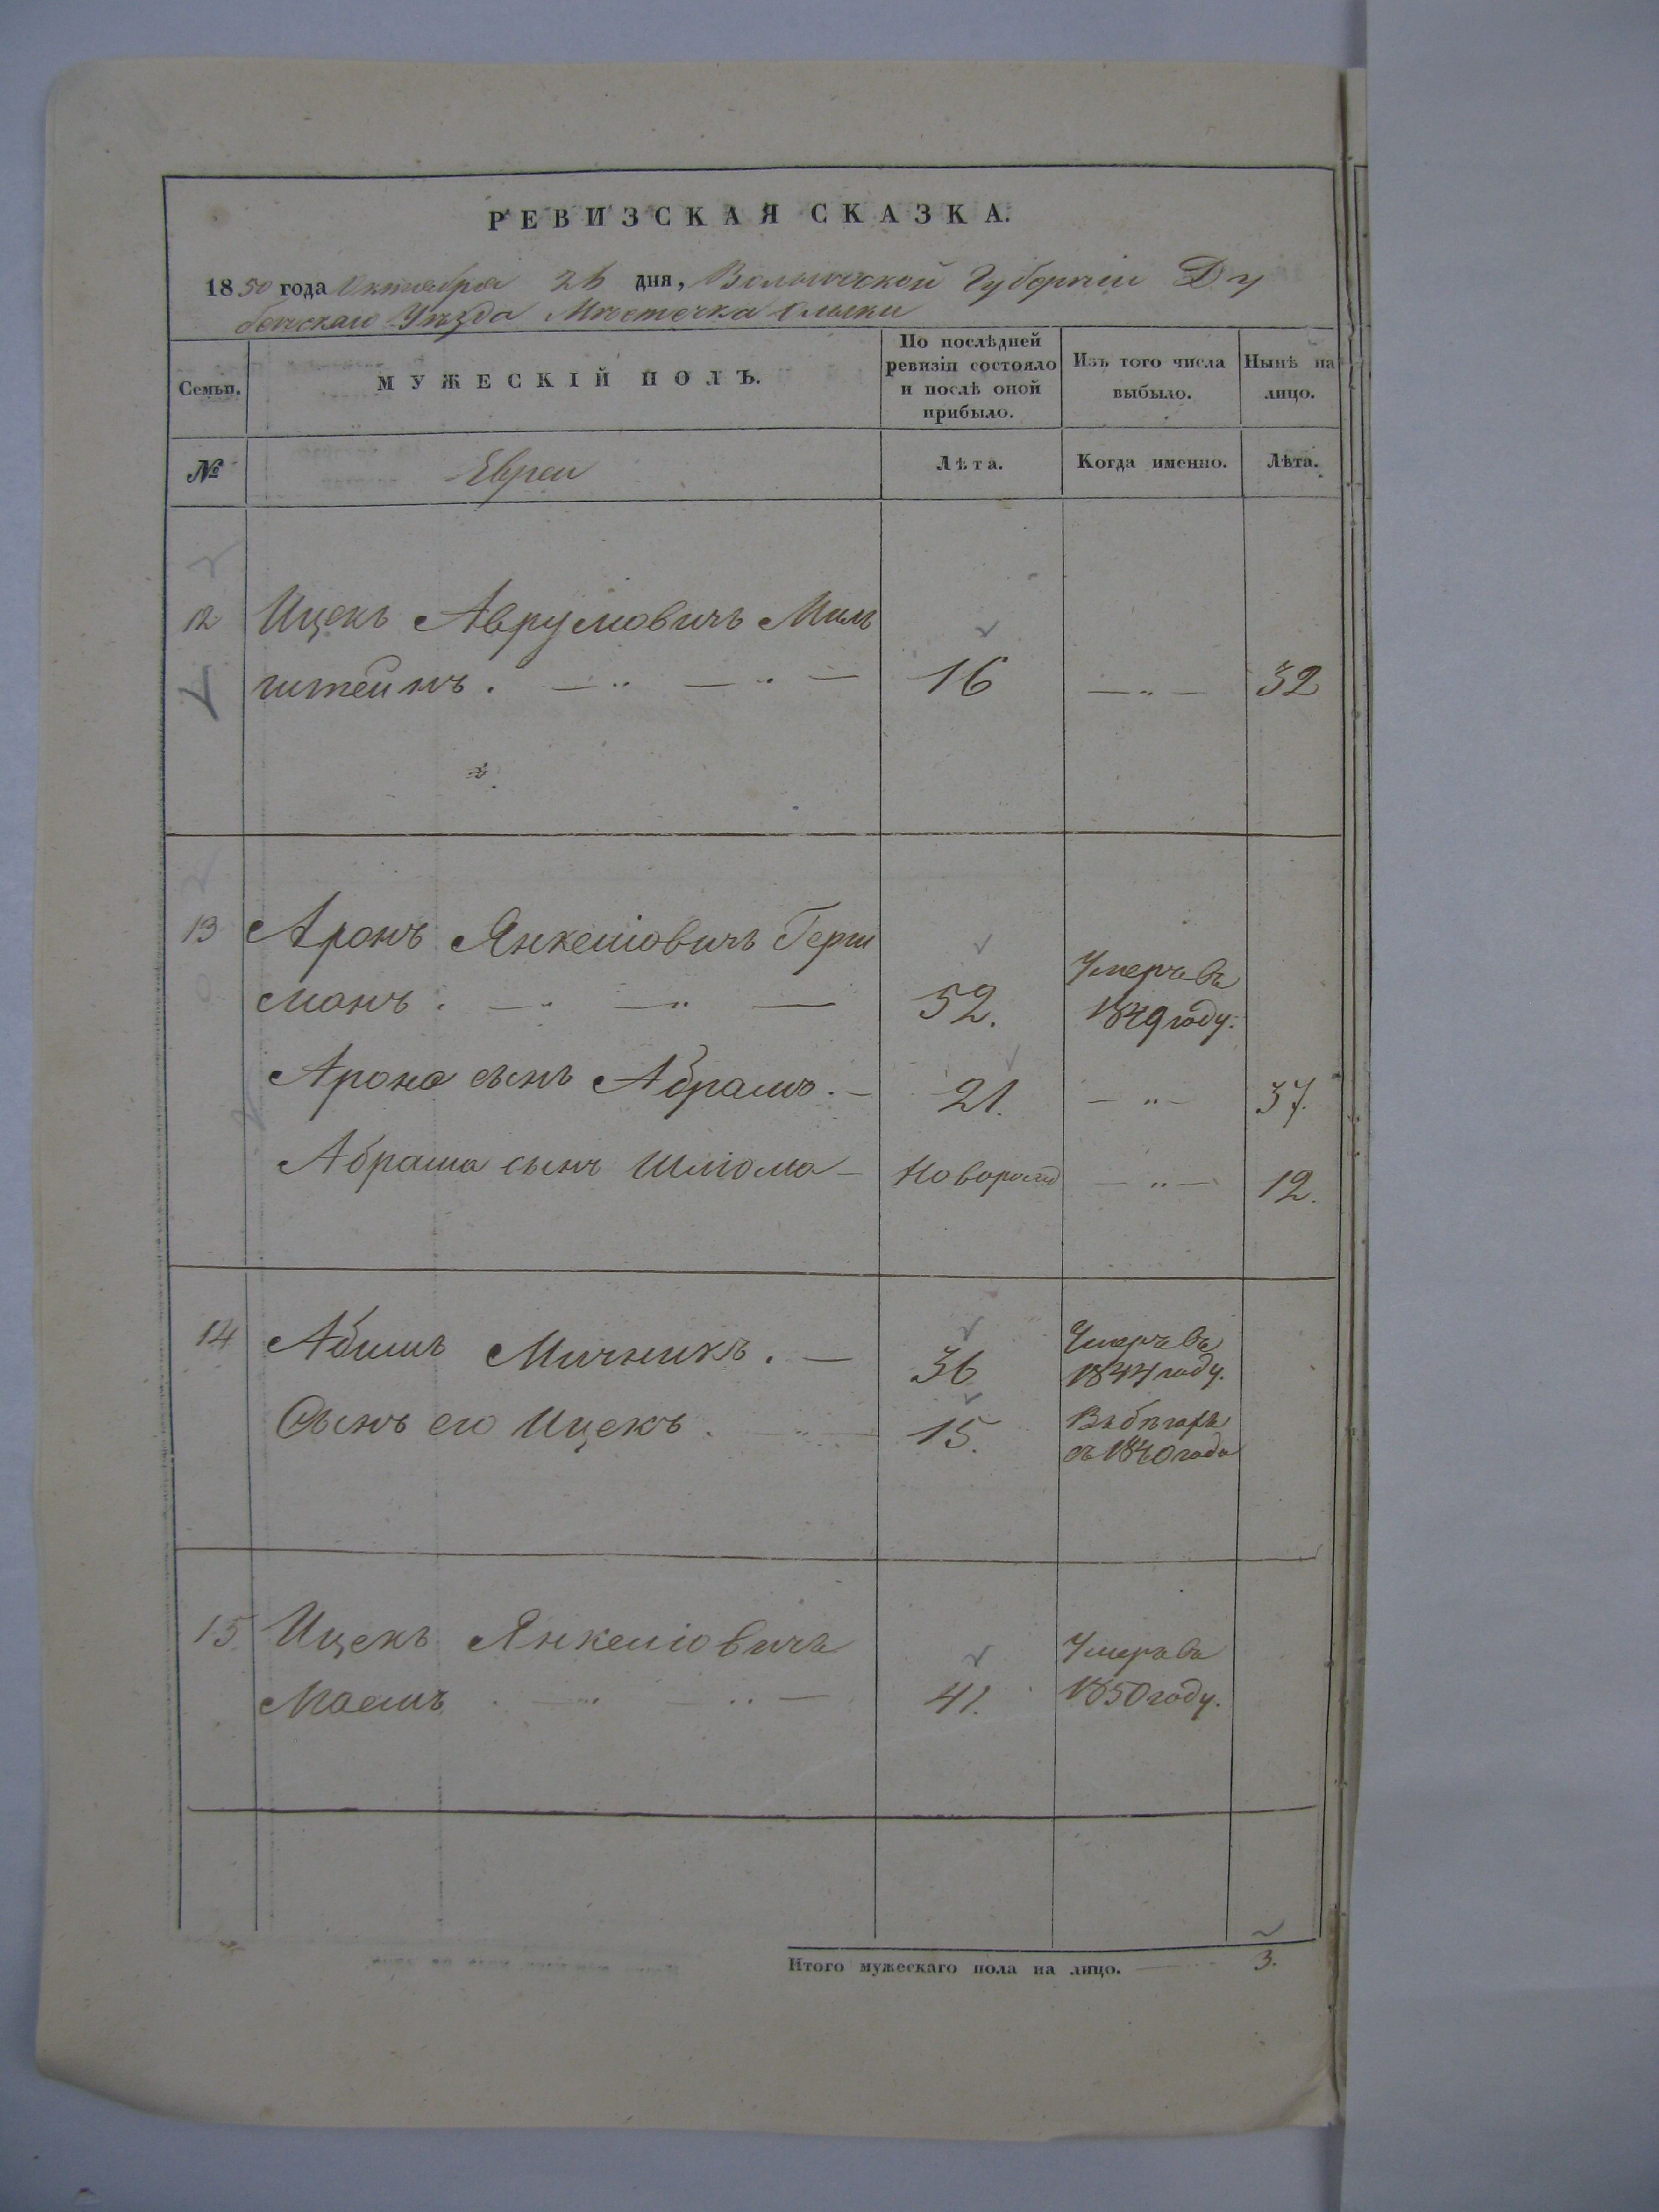 РЕВИЗСКАЯ СКАЗКА.
1850 года Октября 26 дня, Волынской Губернiи Ду
бенскаго Уѣзда Мѣстечка Олыки
Семьи.
МУЖЕСКIЙ ПОЛЪ.
По послѣдней
ревизiи состояло
и послѣ оной
прибыло.
Изъ того числа
выбыло.
Нынѣ на
лицо.
№
Евреи
Лѣта.
Когда именно.
Лѣта.
12 Ицекъ Аврумовичъ Миль
штейнъ. — „ — „ — 16 — „ — 32
13 Аронъ Янкелiовичъ Герш
манъ. — „ — „ — 52. Умеръ въ
1849 году.
Арона сынъ Абрамъ. — 21. — „ — 37.
Абрама сынъ Шлiома — Новорожд — „ — 12.
14 Абишъ Мичникъ. — 36 Умеръ въ
1844 году.
Сынъ его Ицекъ. — „ — 15. Въ бѣгахъ
съ 1840 года
15 Ицекъ Янкелiовичъ
Умеръ въ
— „ — „ — 41. 1850 году.
Итого мужескаго пола на лицо. — 3.